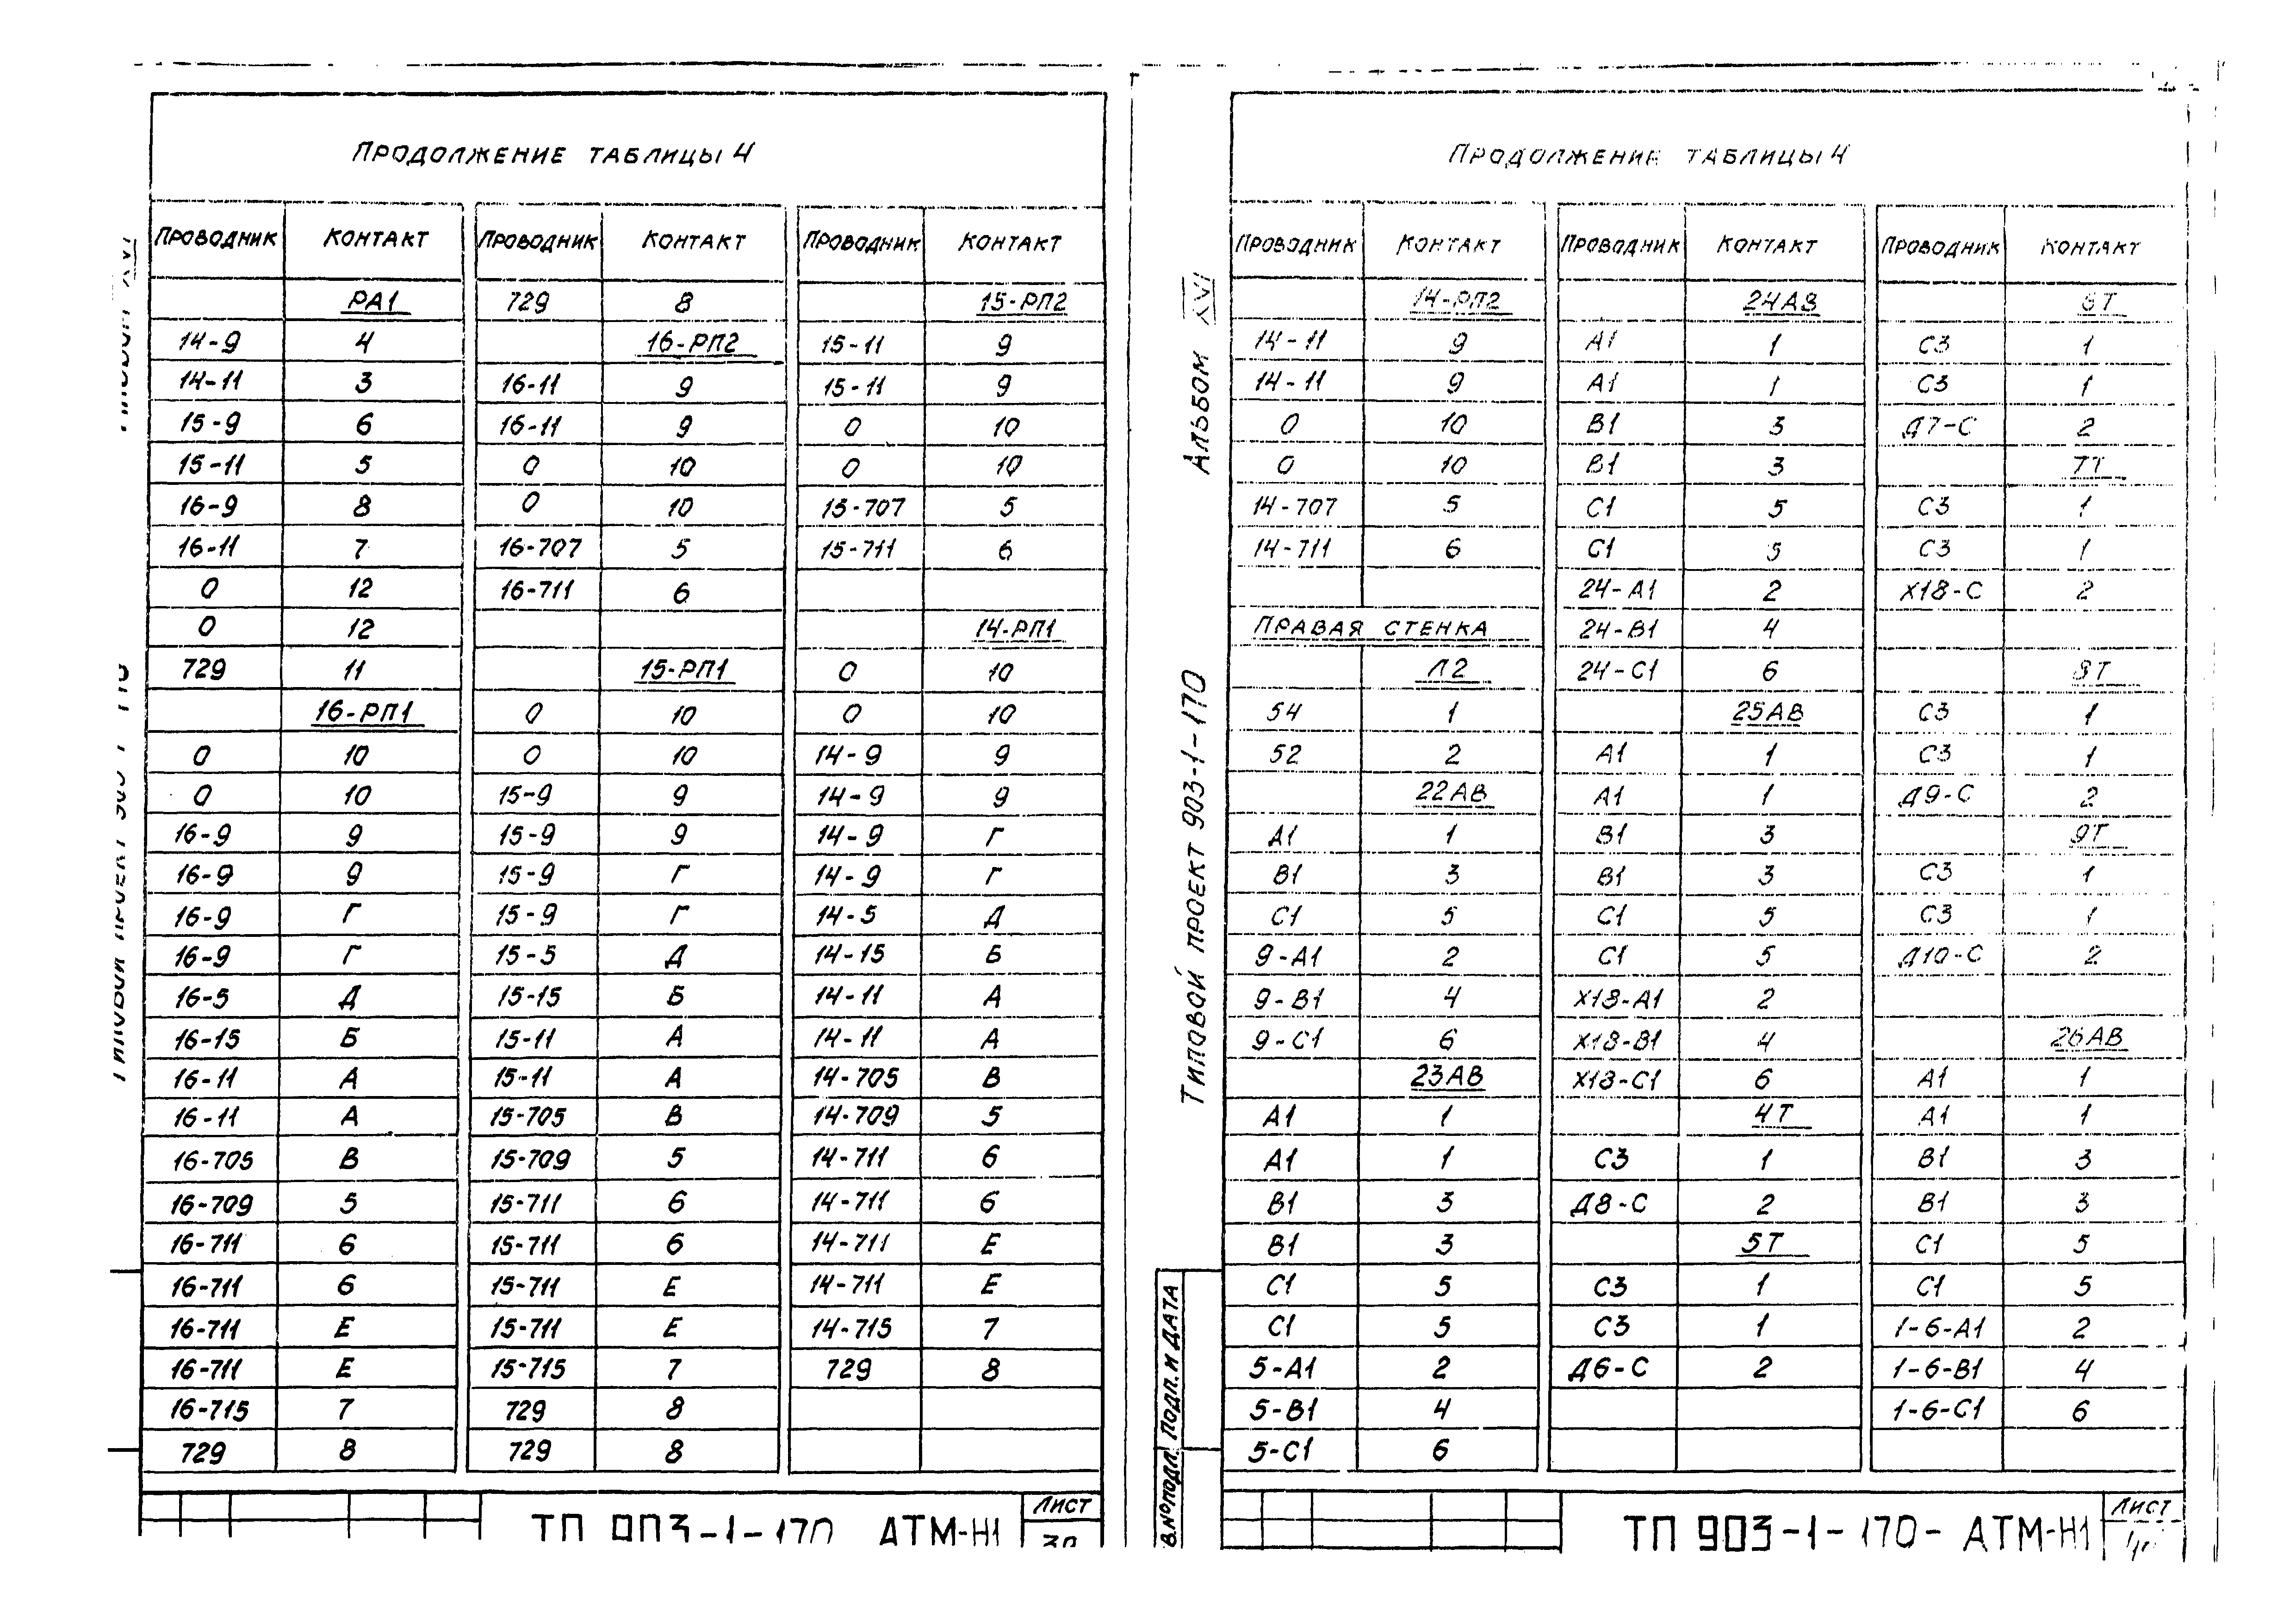 ПРОДОЛЖЕНИЕ ТАБЛИЦЫ 4
ПРОВОДНИК КОНТАКТ ПРОВОДНИК КОНТАКТ ПРОВОДНИК КОНТАКТ
РА1 729 8 15-РП2
14-9 4 16-РП2 15-11 9
14-11 3 16-11 9 15-11 9
15-9 6 16-11 9 0 10
15-11 5 0 10 0 10
16-9 8 0 10 15-707 5
16-11 7 16-707 5 15-711 6
0 12 16-711 6
0 12 14-РП1
729 11 15-РП1 0 10
16-РП1 0 10 0 10
0 10 0 10 14-9 9
0 10 15-9 9 14-9 9
16-9 9 15-9 9 14-9 Г
16-9 9 15-9 Г 14-9 Г
16-9 Г 15-9 Г 14-5 Д
16-9 Г 15-5 Д 14-15 Б
16-5 Д 15-15 Б 14-11 А
16-15 Б 15-11 А 14-11 А
16-11 А 15-11 А 14-705 В
16-11 А 15-705 В 14-709 5
16-705 В 15-709 5 14-711 6
16-709 5 15-711 6 14-711 6
16-711 6 15-711 6 14-711 Е
16-711 6 15-711 Е 14-711 Е
16-711 Е 15-711 Е 14-715 7
16-711 Е 15-715 7 729 8
16-715 7 729 8
729 8 729 8
АТМ-Н1
ЛИСТ
АЛЬБОМ XVI
ТИПОВОЙ ПРОЕКТ 903-1-170
ПОДП. И ДАТА
ПРОДОЛЖЕНИЕ ТАБЛИЦЫ 4
ПРОВОДНИК КОНТАКТ ПРОВОДНИК КОНТАКТ ПРОВОДНИК КОНТАКТ
14-РП2 24АВ
14-11 9 А1 1 С3 1
14-11 9 А1 1 С3 1
0 10 В1 3 Д7-С 2
0 10 В1 3 7Т
14-707 5 С1 5 С3 1
14-711 6 С1 5 С3 1
24-А1 2 Х18-С 2
ПРАВАЯ СТЕНКА 24-В1 4
Л2 24-С1 6 8Т
54 1 25АВ С3 1
52 2 А1 1 С3 1
22АВ А1 1 Д9-С 2
А1 1 В1 3 9Т
В1 3 В1 3 С3 1
С1 5 С1 5 С3 1
9-А1 2 С1 5 Д10-С 2
9-В1 4 Х18-А1 2
9-С1 6 Х18-В1 4 26АВ
23АВ Х18-С1 6 А1 1
А1 1 4Т А1 1
А1 1 С3 1 В1 3
В1 3 Д8-С 2 В1 3
В1 3 5Т С1 5
С1 5 С3 1 С1 5
С1 5 С3 1 1-6-А1 2
5-А1 2 Д6-С 2 1-6-В1 4
5-В1 4 1-6-С1 6
5-С1 6
ТП 903-1-170- АТМ-Н1
ЛИСТ